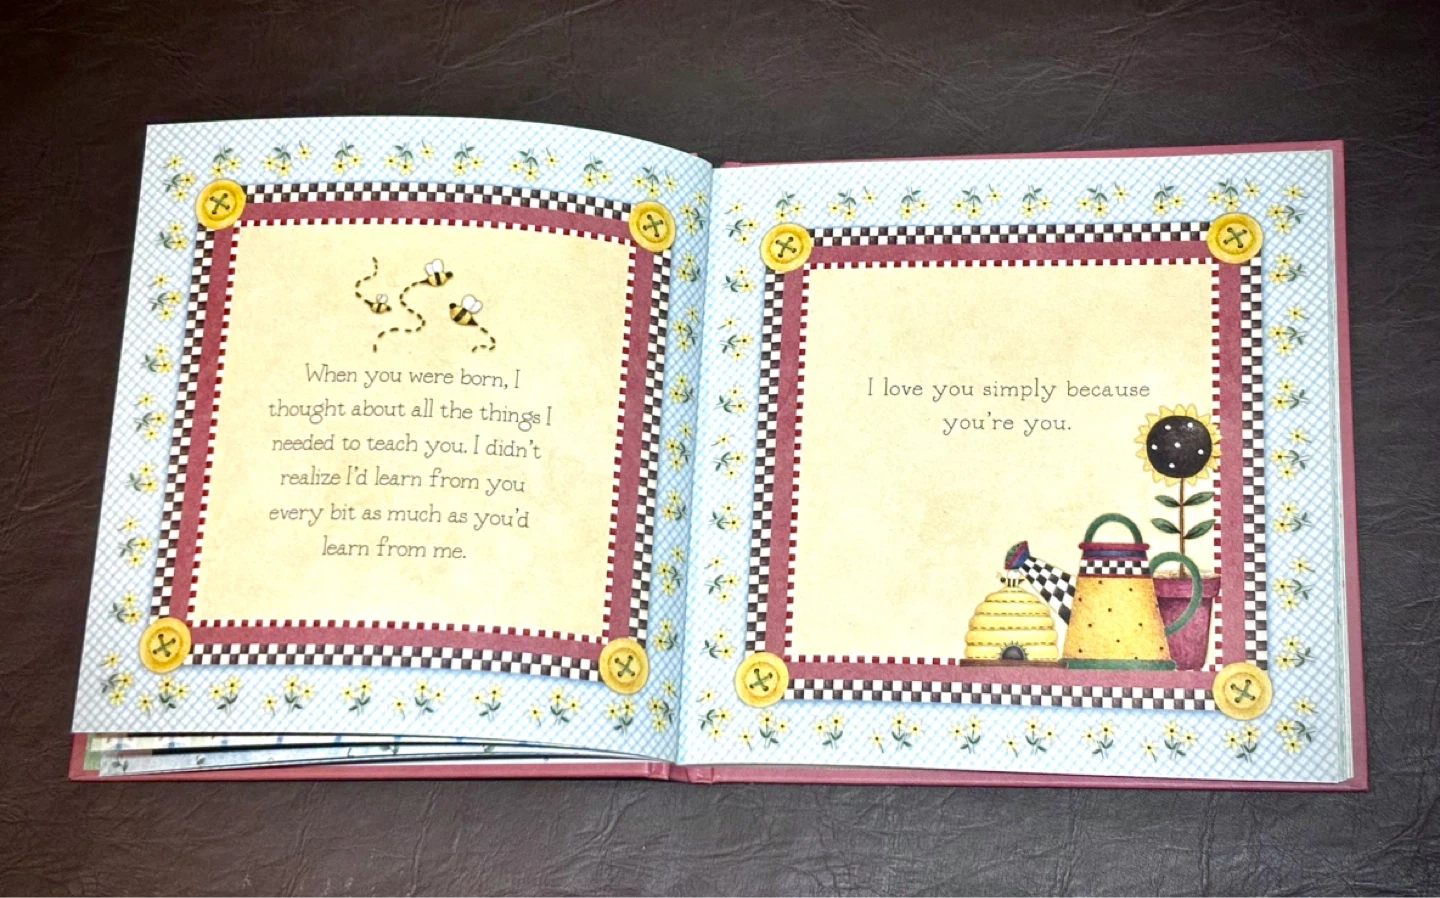 When you were born, I
thought about all the things I
needed to teach you. I didn't
realize I'd learn from you
every bit as much as you'd
learn from me.
I love you simply because
you're you.